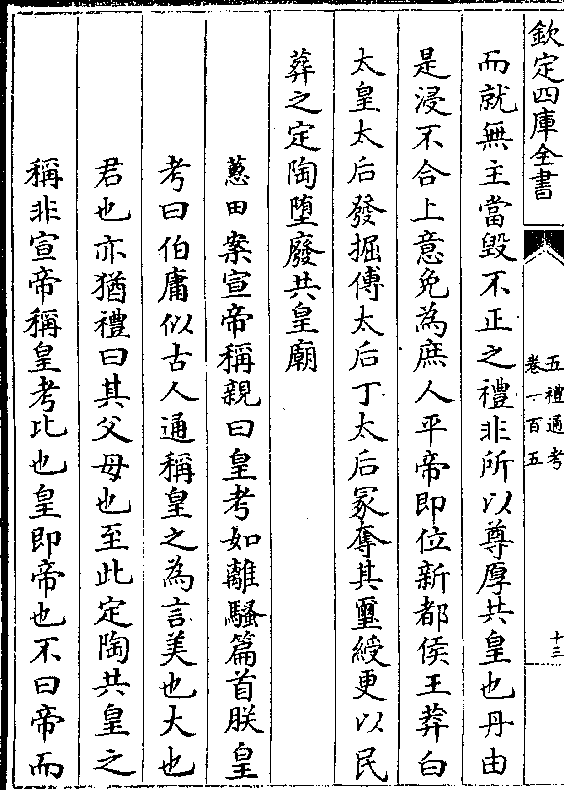 欽定四庫全書
五禮通考
卷一百五
十三
而就無主當毀不正之禮非所以尊厚共皇也丹由
是浸不合上意免為庶人平帝即位新都侯王莽白
太皇太后發掘傅太后丁太后冢奪其璽綬更以民
葬之定陶堕廢共皇廟
蔥田案宣帝稱親曰皇考如離騷篇首朕皇
考曰伯庸似古人通稱皇之為言美也大也
君也亦猶禮曰其父母也至此定陶共皇之
稱非宣帝稱皇考比也皇即帝也不曰帝而